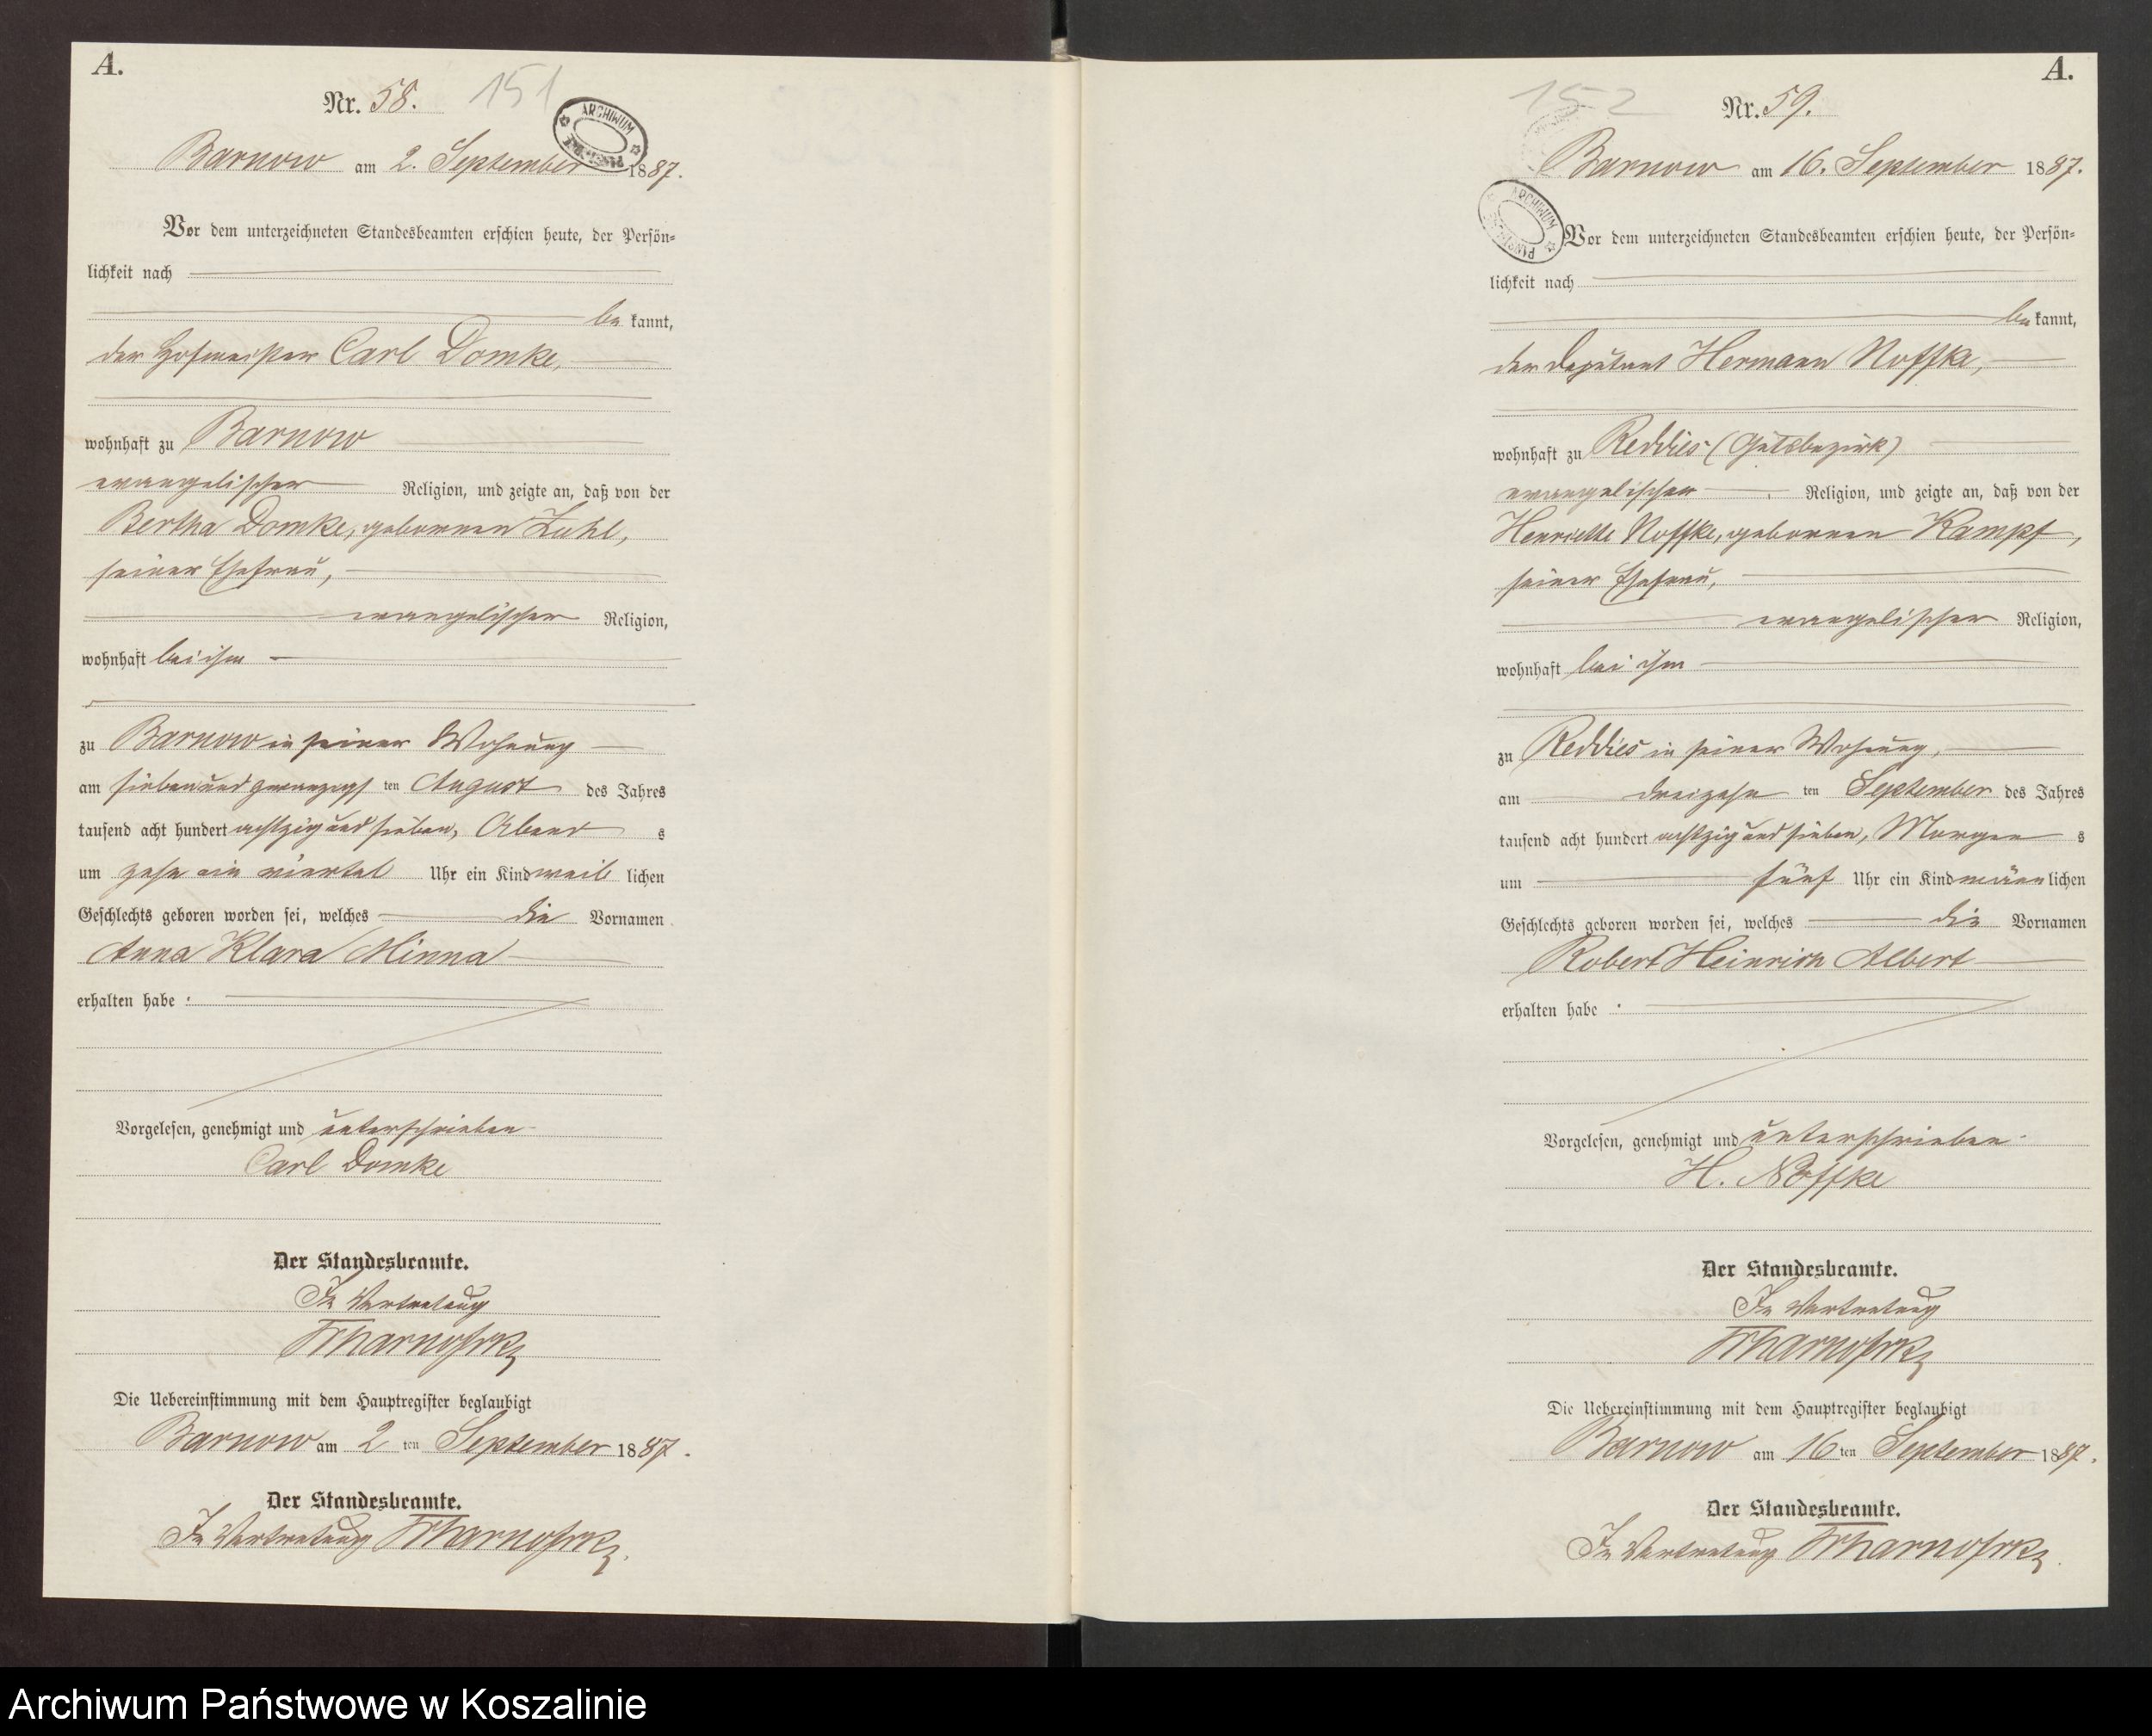 A.
Nr. 58. 151
ARCHIWUM
Barnow am 2. September 1887.
Vor dem unterzeichneten Standesbeamten erschien heute, der Persön=
lichkeit nach
be kannt,
der Hofmeister Carl Domke,
wohnhaft zu Barnow
evangelischer Religion, und zeigte an, daß von der
Bertha Domke, geborenen
seiner Ehefrau,
evangelischer Religion,
wohnhaft bei ihm
zu Barnow in seiner Wohnung
am siebenundzwanzigs ten August des Jahres
tausend acht hundert achtzig und sieben, Abend s
um zehn ein viertel Uhr ein Kind weib lichen
Geschlechts geboren worden sei, welches die Vornamen
Anna Klara Minna
erhalten habe.
Vorgelesen, genehmigt und unterschrieben
Carl Domke
Der Standesbeamte.
In Vertretung
Die Uebereinstimmung mit dem Hauptregister beglaubigt
Barnow am 2 ten September 1887.
Der Standesbeamte.
In Vertretung
A.
152 Nr. 59.
Barnow am 16. September 1887.
ARCHIWUM
Vor dem unterzeichneten Standesbeamten erschien heute, der Persön=
lichkeit nach
be kannt,
der Deputant Hermann Noffke,
wohnhaft zu Reddies (Gutsbezirk)
evangelischer Religion, und zeigte an, daß von der
Henriette Noffke, geborenen Kampf,
seiner Ehefrau,
evangelischer Religion,
wohnhaft bei ihm
zu Reddies in seiner Wohnung,
am dreizehn ten September des Jahres
tausend acht hundert achtzig und sieben, Morgen s
um fünf Uhr ein Kind männ lichen
Geschlechts geboren worden sei, welches die Vornamen
Robert Heinrich Albert
erhalten habe.
Vorgelesen, genehmigt und unterschrieben.
H. Noffke
Der Standesbeamte.
In Vertretung
Die Uebereinstimmung mit dem Hauptregister beglaubigt
Barnow am 16 ten September 1887.
Der Standesbeamte.
In Vertretung
Archiwum Państwowe w Koszalinie